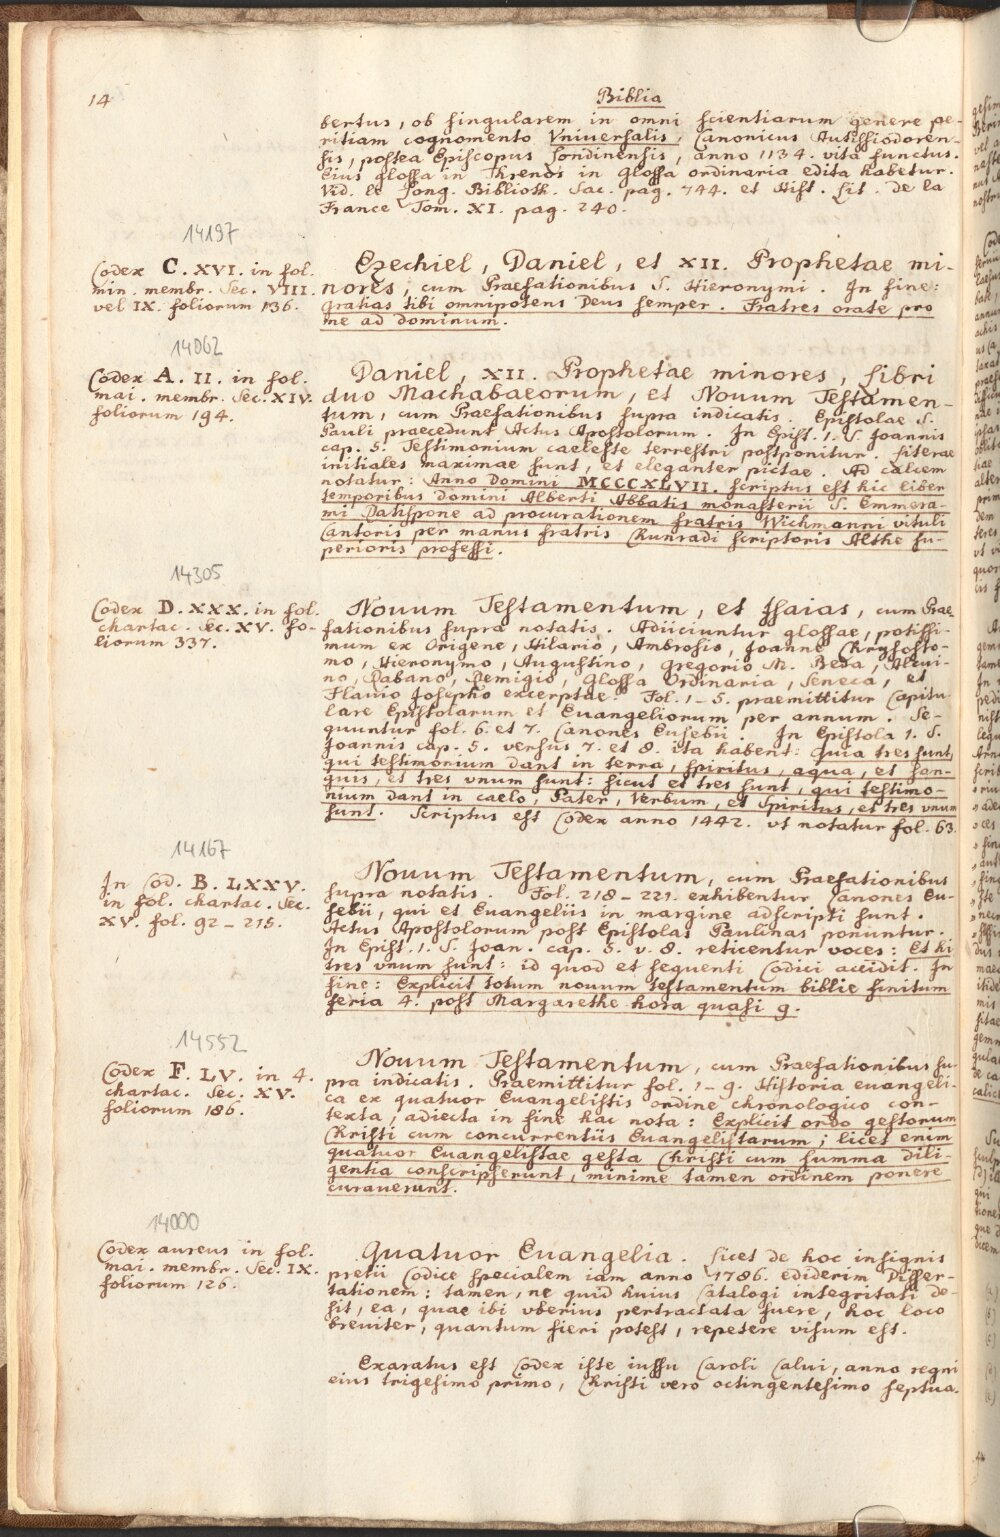 14
Biblia
bertus, ob singularem in omni scientiarum genere pe-
ritiam cognomento Vniuersalis, Canonicus Autissiodoren-
sis, postea Episcopus Londinensis, anno 1134. vita functus.
Eius glossa in Threnos in Glossa ordinaria edita habetur.
Vid. le Long. Biblioth. Sac. pag. 744. et Hist. Lit. de la
France Tom. XI. pag. 240.
14197
Codex C. XVI. in fol.
min. membr. Sec. VIII.
vel IX. foliorum 136.
Ezechiel, Daniel, et XII. Prophetae mi-
nores, cum Praefationibus S. Hieronymi. In fine:
gratias tibi omnipotens Deus semper. Fratres orate pro
me ad dominum.
14062
Codex A. II. in fol.
mai. membr. Sec. XIV.
foliorum 194.
Daniel, XII. Prophetae minores, Libri
duo Machabaeorum, et Nouum Testamen-
tum, cum Praefationibus supra indicatis. Epistolae S.
Pauli praecedunt Actus Apostolorum. In Epist. 1. S. Joannis
cap. 5. Testimonium caeleste terrestri postponitur. Literae
initiales maximae sunt, et eleganter pictae. Ad calcem
notatur: Anno Domini MCCCXLVII. scriptus est hic liber
temporibus domini Alberti Abbatis monasterii S. Emmera-
mi Ratispone ad procurationem fratris Wichmanni vituli
Cantoris per manus fratris Chunradi scriptoris Althe su-
perioris professi.
14305
Codex D. XXX. in fol.
chartac. Sec. XV. fo-
liorum 337.
Nouum Testamentum, et Isaias, cum Prae
fationibus supra notatis. Adiiciuntur glossae, potissi-
mum ex Origene, Hilario, Ambrosio, Joanne Chrysosto-
mo, Hieronymo, Augustino, Gregorio M. Beda, Alcui-
no, Rabano, Remigio, Glossa Ordinaria, Seneca, et
Flavio Josepho excerptae. Fol. 1-5. praemittitur Capitu
lare Epistolarum et Euangeliorum per annum. Se-
quuntur fol. 6. et 7. Canones Eusebii. In Epistola 1. S.
Joannis cap. 5. versus 7. et 8. ita habent: Quia tres sunt,
qui testimonium dant in terra, spiritus, aqua, et san-
guis, et tres vnum sunt: sicut et tres sunt, qui testimo-
nium dant in caelo, Pater, Verbum, et Spiritus, et tres vnum
sunt. Scriptus est Codex anno 1442. vt notatur fol. 63.
14167
In Cod. B. LXXV.
in fol. chartac. Sec.
XV. fol. 92-215.
Nouum Testamentum, cum Praefationibus
supra notatis. Fol. 218-221. exhibentur Canones Eu-
sebii, qui et Euangeliis in margine adscripti sunt.
Actus Apostolorum post Epistolas Paulinas ponuntur.
In Epist. 1. S. Joan. cap. 5. v. 8. reticentur voces: Et hi
tres vnum sunt: id quod et sequenti Codici accidit. In
fine: Explicit totum nouum testamentum biblie finitum
feria 4. post Margarethe hora quasi 9.
14552
Codex F. LV. in 4.
chartac. Sec. XV.
foliorum 186.
Nouum Testamentum, cum Praefationibus su-
pra indicatis. Praemittitur fol. 1-9. Historia euangeli-
ca ex quatuor Euangelistis ordine chronologico con-
texta, adiecta in fine hac nota: Explicit ordo gestorum
Christi cum concurrentiis Euangelistarum; licet enim
quatuor Euangelistae gesta Christi cum summa dili-
gentia conscripserunt, minime tamen ordinem ponere
curauerunt.
14000
Codex aureus in fol.
mai. membr. Sec. IX.
foliorum 126.
Quatuor Euangelia. Licet de hoc insignis
pretii Codice specialem iam anno 1786. ediderim Disser-
tationem: tamen, ne quid huius Catalogi integritati de-
sit, ea, quae ibi vberius pertractata fuere, hoc loco
breuiter, quantum fieri potest, repetere visum est.
Exaratus est Codex iste iussu Caroli Calui, anno regni
eius trigesimo primo, Christi vero octingentesimo septua-